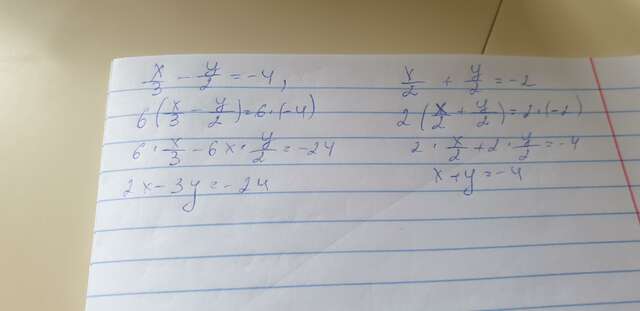 x/3 - y/2 = -4,
6(x/3 - y/2) = 6·(-4)
6·x/3 - 6x·y/2 = -24
2x - 3y = -24
x/2 + y/2 = -2
2(x/2 + y/2) = 2·(-2)
2·x/2 + 2·y/2 = -4
x + y = -4